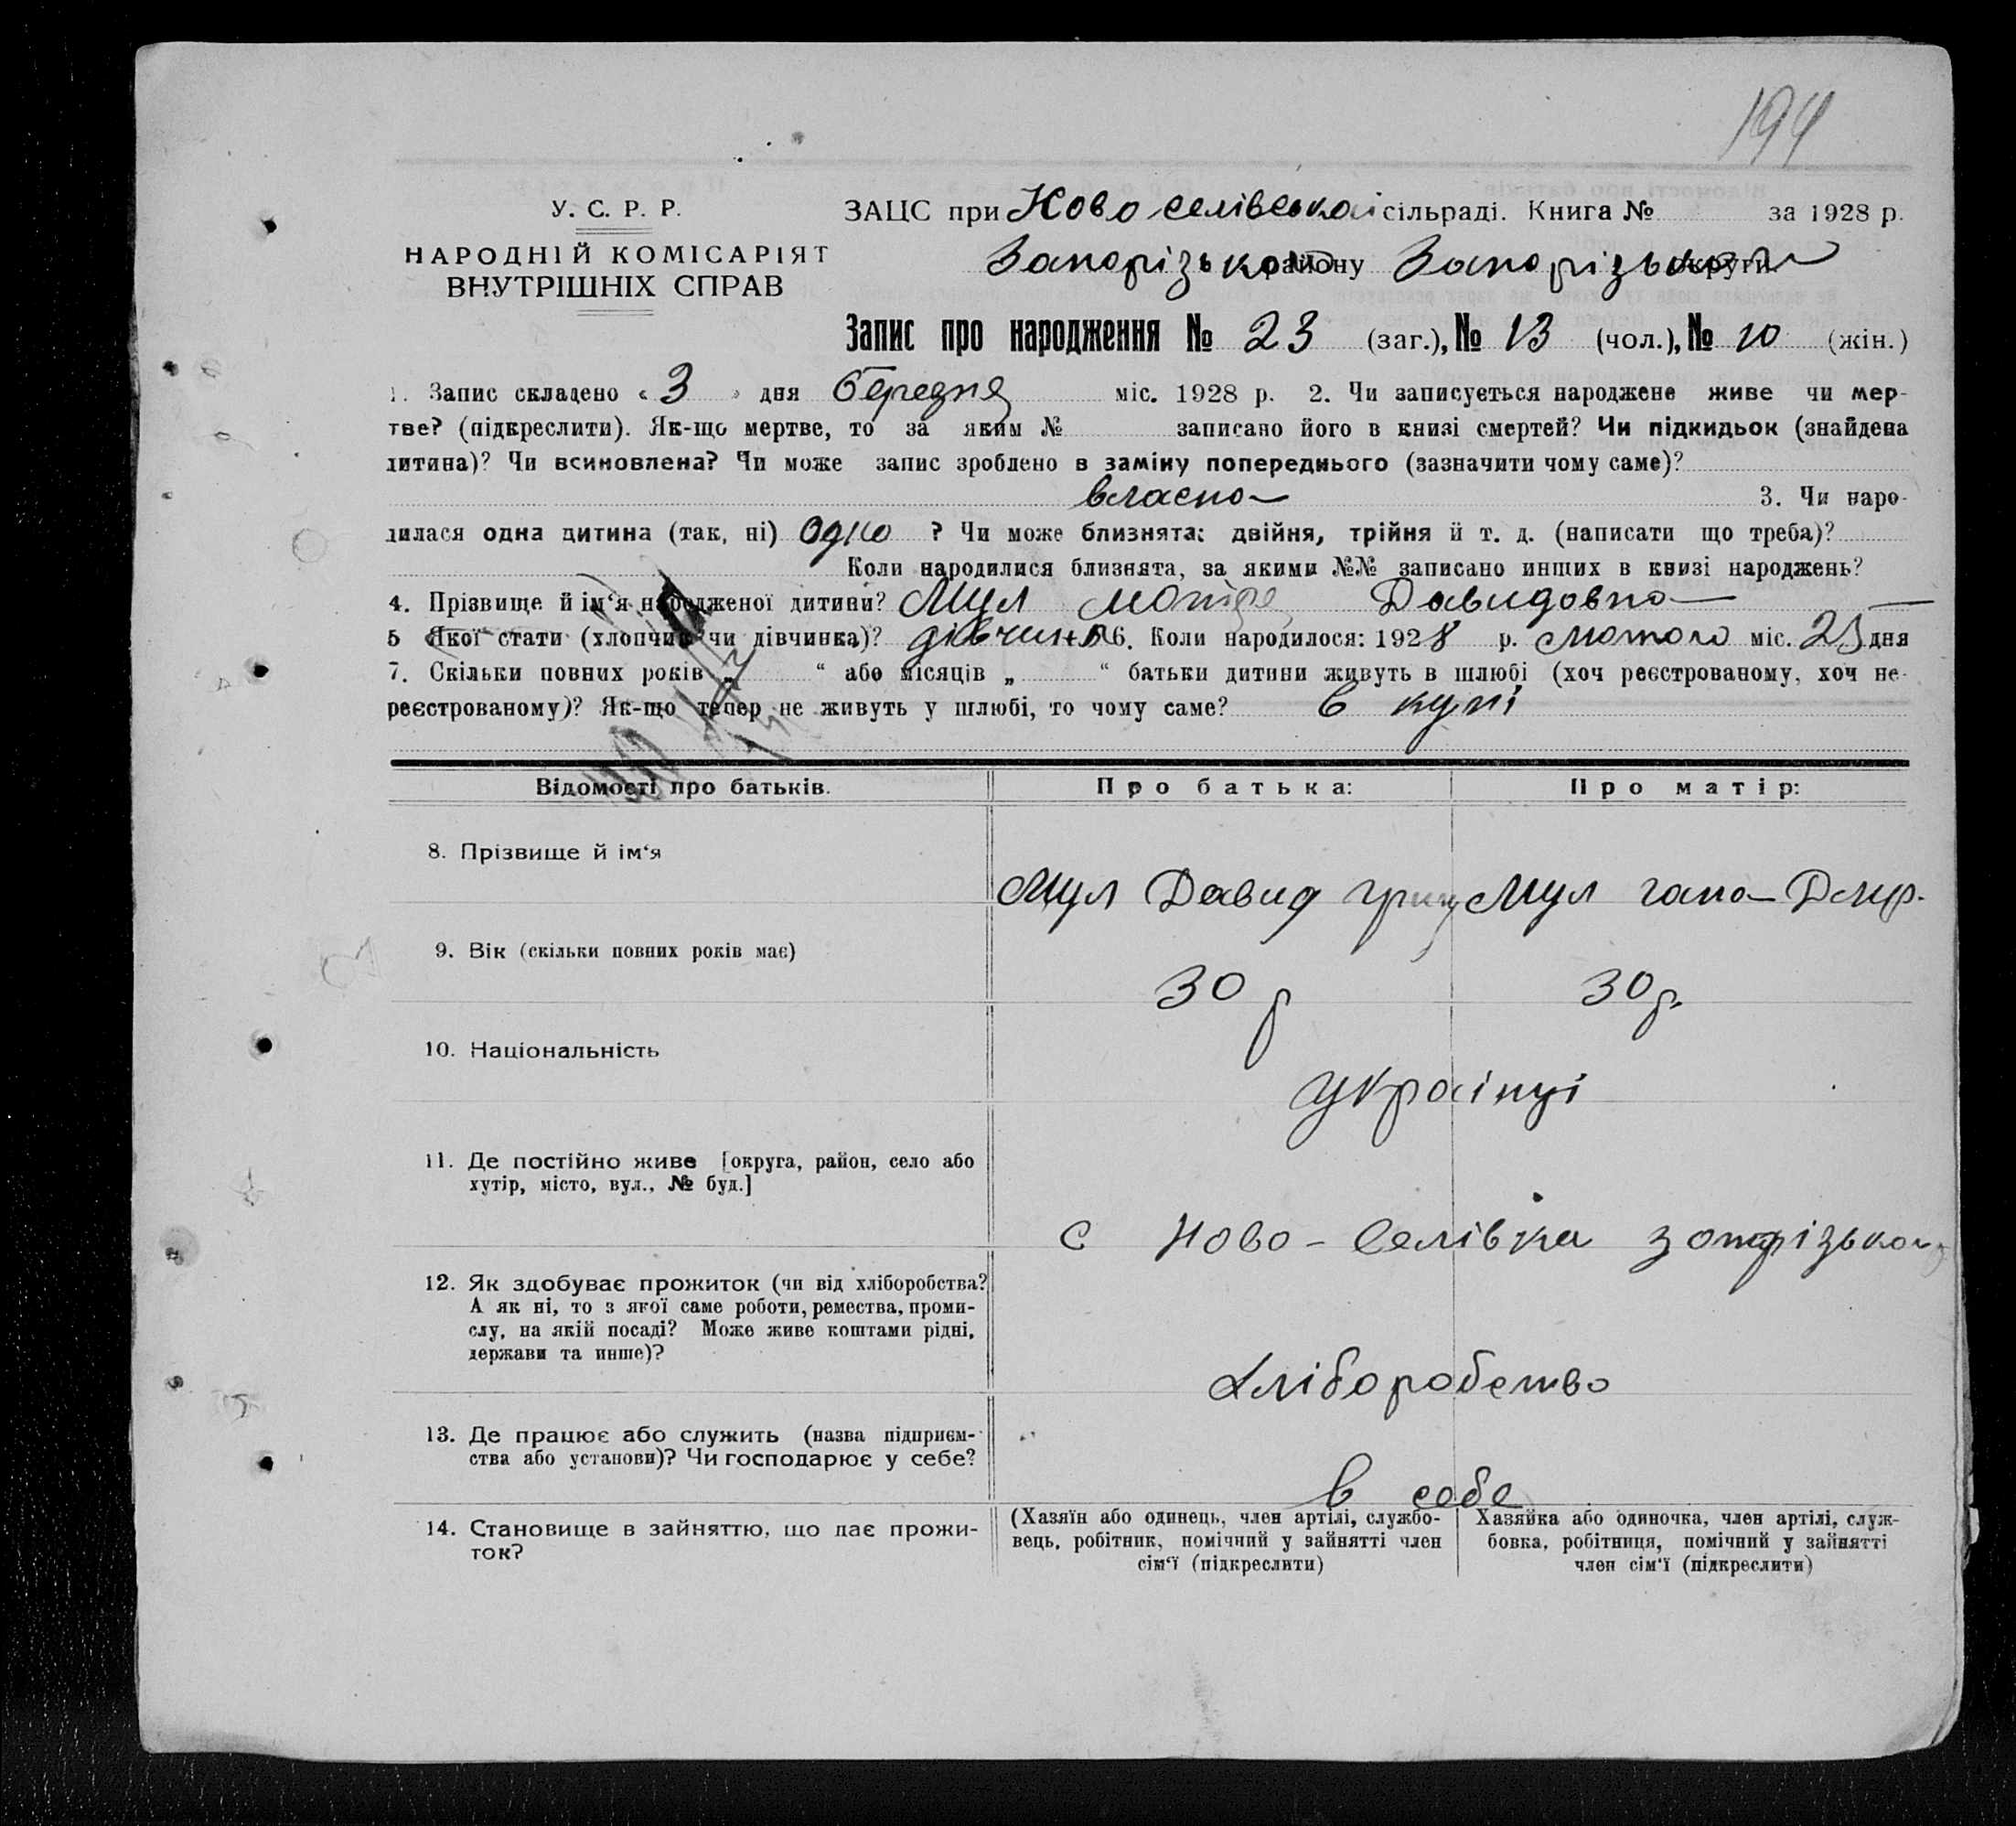 194
У. С. Р. Р.
НАРОДНІЙ КОМІСАРІЯТ
ВНУТРІШНІХ СПРАВ
ЗАЦС при Ново селівській сільраді. Книга № за 1928 р.
Запорізького району Запорізької округи
Запис про народження № 23 (заг.), № 13 (чол.), № 10 (жін.)
1. Запис складено « 3 » дня березня міс. 1928 р. 2. Чи записується народжене живе чи мер-
тве? (підкреслити). Як-що мертве, то за яким № записано його в книзі смертей? Чи підкидьок (знайдена
дитина)? Чи всиновлена? Чи може запис зроблено в заміну попереднього (зазначити чому саме)?
власна 3. Чи наро-
дилася одна дитина (так, ні) одно ? Чи може близнята: двійня, трійня й т. д. (написати що треба)?
Коли народилися близнята, за якими №№ записано инших в книзі народжень?
4. Прізвище й ім‘я народженої дитини? Мул Мотря Давидовна
5 Якої стати (хлопчик чи дівчинка)? дівчинка 6. Коли народилося: 1928 р. лютого міс. 25 дня
7. Скільки повних років „ “ або місяців „ “ батьки дитини живуть в шлюбі (хоч реєстрованому, хоч не-
реєстрованому)? Як-що тепер не живуть у шлюбі, то чому саме? в купі
Відомості про батьків. Про батька: Про матір:
8. Прізвище й ім‘я
Мул Давид Мул гана Дмр.
9. Вік (скільки повних років має)
30 р 30 р.
10. Національність
українці
11. Де постійно живе [округа, район, село або
хутір, місто, вул., № буд.]
с Ново-Селівка
12. Як здобуває прожиток (чи від хліборобства?
А як ні, то з якої саме роботи, ремества, проми-
слу, на якій посаді? Може живе коштами рідні,
держави та инше)?
Хліборобство
13. Де працює або служить (назва підприєм-
ства або установи)? Чи господарює у себе?
в себе
14. Становище в зайняттю, що дає прожи-
ток?
(Хазяїн або одинець, член артілі, службо-
вець, робітник, помічний у зайнятті член
сім‘ї (підкреслити)
Хазяйка або одиночка, член артілі, служ-
бовка, робітниця, помічний у зайнятті
член сім‘ї (підкреслити)